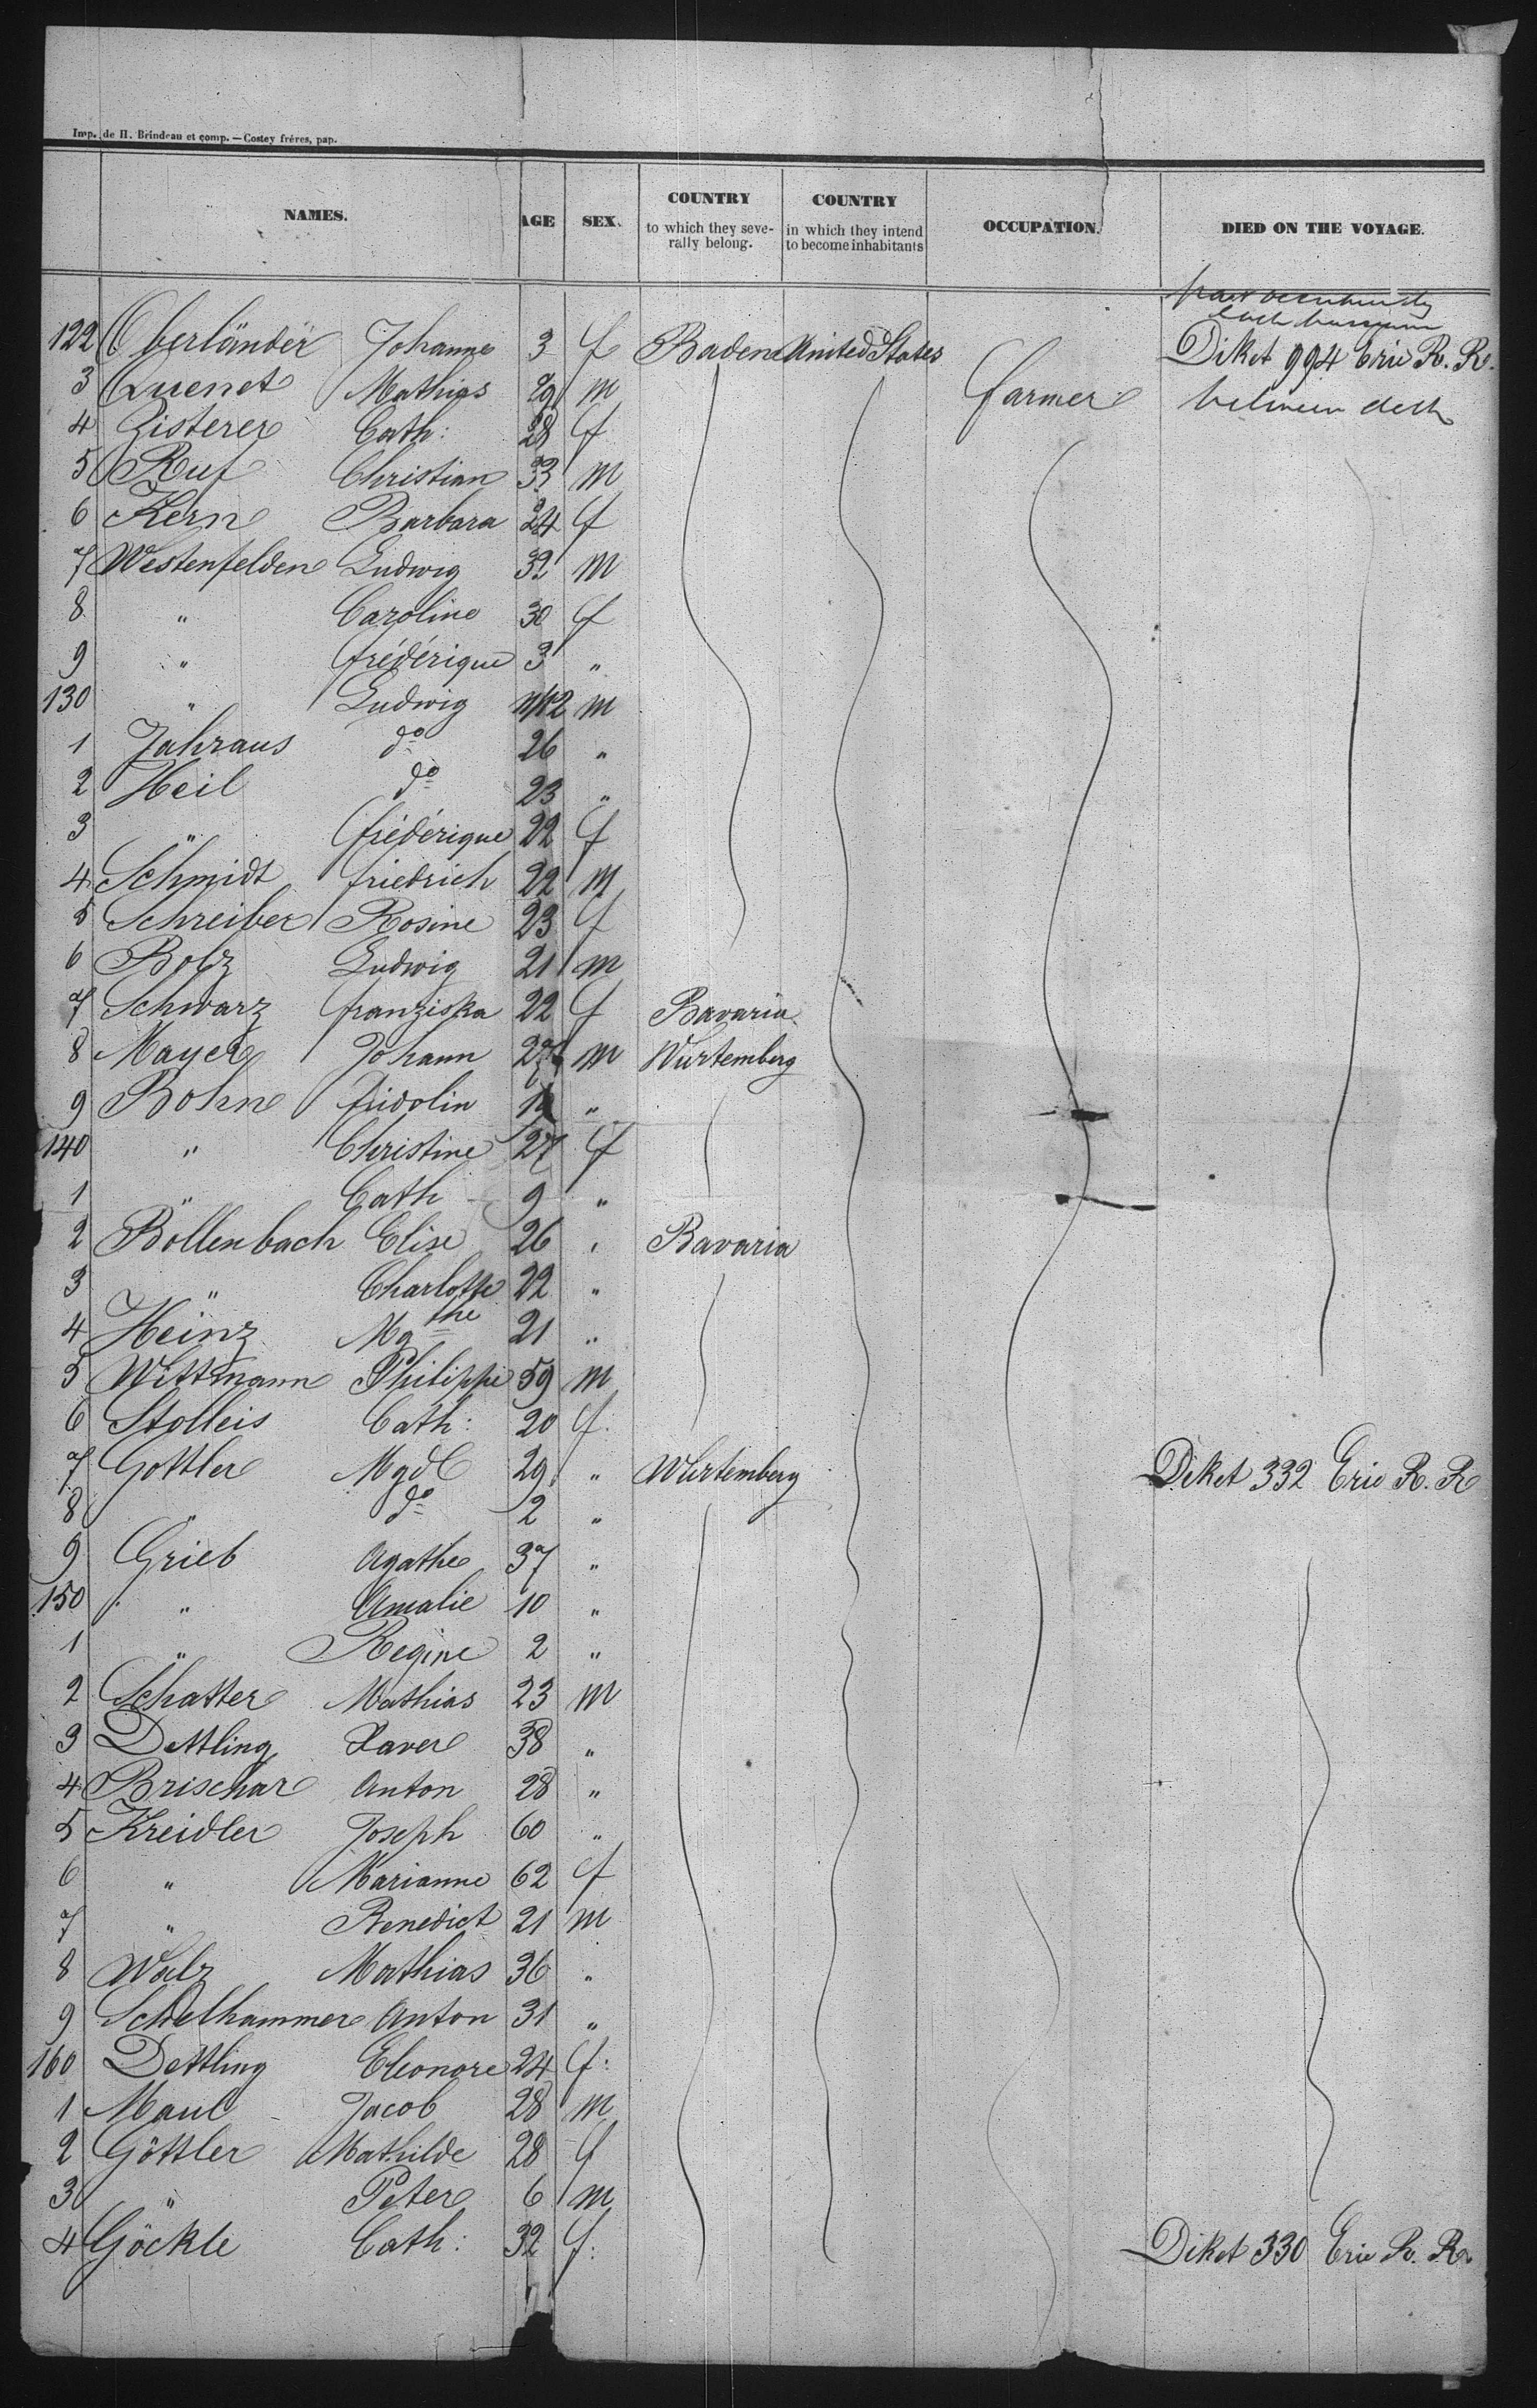 Imp. de H. Brindeau et comp. — Costey fréres, pap.
NAMES. AGE SEX. COUNTRY to which they seve- rally belong. COUNTRY in which they intend to become inhabitants OCCUPATION. DIED ON THE VOYAGE.
122 Oberländer Johanne 3 f Baden United States Diket 994 Erie R. R.
3 Quenet Mathias 29 m farmer between deck
4 Zisterer Cath: 28 f
5 Ruf Christian 33 m
6 Kern Barbara 24 f
7 Westenfelden Ludwig 32 m
8 " Caroline 30 f
9 " frédérique 3 "
130 " Ludwig 11/12 m
1 Jahraus do 26 "
2 Heil do 23 "
3 " frédérique 22 f
4 Schmidt friedrich 22 m
5 Schreiber Rosine 23 f
6 Bolz Ludwig 21 m
7 Schwarz franziska 22 f Bavaria
8 Mayer Johann 27 m Wurtemberg
9 Bohn fridolin "
140 " Christine 27 f
1 " Cath 9 "
2 Böllenbach Elise 26 " Bavaria
3 " Charlotte 22 "
4 Heinz Mgthe 21 "
5 Wittmann Philippe 59 m
6 Stolleis Cath: 20 f.
7 Gottler Mgdl 29 " Wurtemberg Diket 332 Erie R. R
8 " do 2 "
9 Grieb Agathe 37 "
150 " Amalie 10 "
1 " Regine 2 "
2 Schatter Mathias 23 m
3 Dettling Xaver 38 "
4 Brischar Anton 28 "
5 Kreidler Joseph 60 "
6 " Marianne 62 f
7 " Benedict 21 m
8 Walz Mathias 36 "
9 Schelhammer Anton 31 "
160 Dettling Eleonore 24 f:
1 Maul Jacob 28 m
2 Göttler Mathilde 28 f
3 " Peter 6 m
4 Göckle Cath: 32 f: Diket 330 Erie R. R.